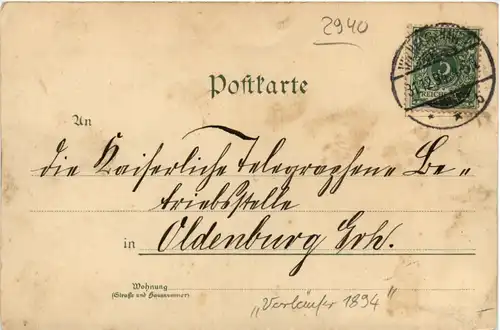 2940
5
REICHSPOST
Postkarte
An
die Kaiserliche Telegraphene Be-
triebsstelle
in Oldenburg Grh.
Wohnung
(Straße und Hausnummer)
„Vorläufer 1894"